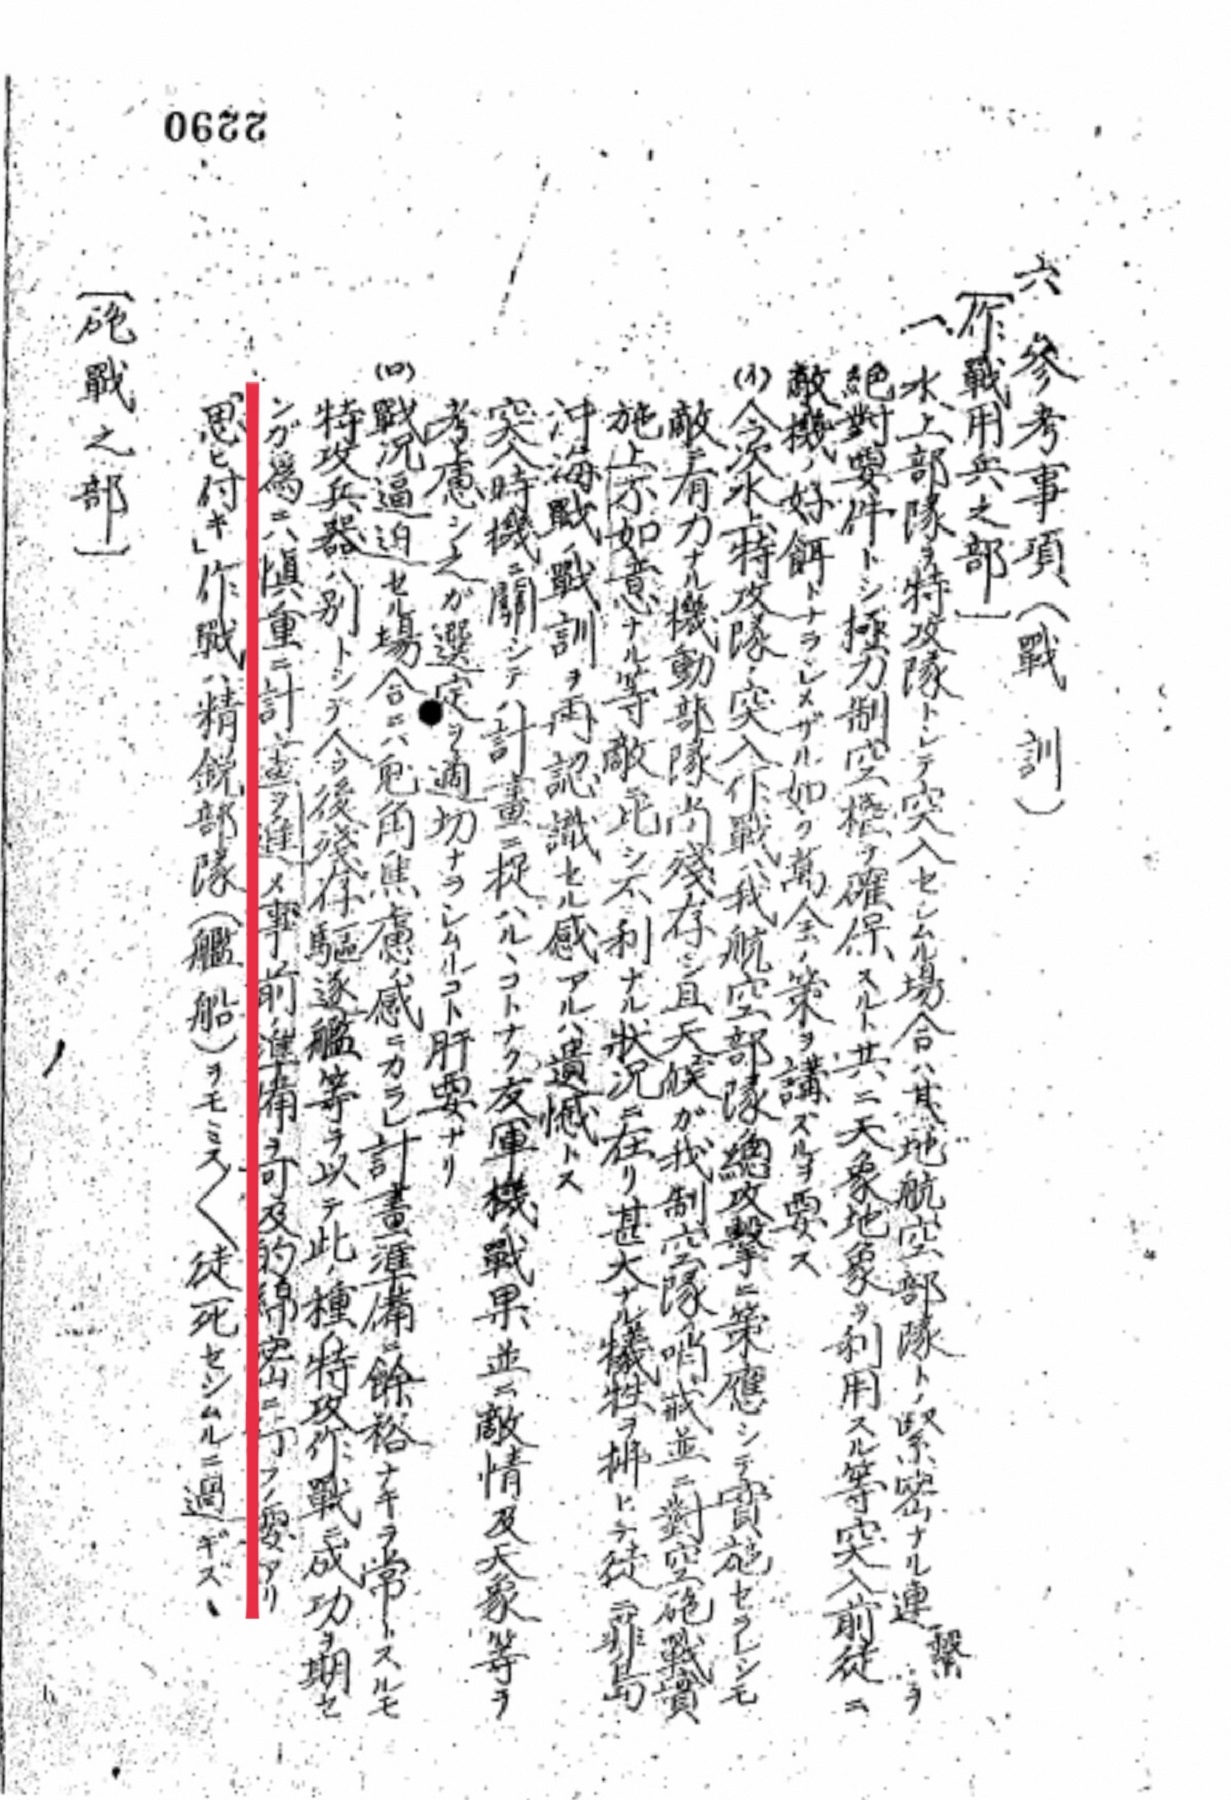 0622
六 參考事項(戰訓)
〔作戰用兵之部〕
一、水上部隊ヲ特攻隊トシテ突入セシムル場合ハ其地航空部隊トノ緊密ナル連繫ヲ
絕對要件トシ極力制空權ヲ確保スルト共ニ天象地象ヲ利用スル等突入前徒ニ
敵機ノ好餌トナラシメザル如ク萬全ノ策ヲ講ズルヲ要ス
(イ)今次水上特攻隊ノ突入作戰ハ我航空部隊總攻擊ニ策應シテ實施セラレシモ
敵ニ有力ナル機動部隊尚殘存シ且天候ガ我制空隊ノ哨戒並ニ對空砲戰實
施上不如意ナル等敵ニ比シ不利ナル狀況ニ在リ甚大ナル犧牲ヲ拂ヒテ徒ニ菲島
沖海戰ノ戰訓ヲ再認識セル感アルハ遺憾トス
突入時機ニ關シテハ計畫ニ捉ハルヽコトナク友軍機ノ戰果並ニ敵情及天象等ヲ
考慮シ之ガ選定ヲ適切ナラシムルコト肝要ナリ
(ロ)戰況逼迫セル場合ニハ兎角焦慮ノ感ニカラレ計畫準備ニ餘裕ナキヲ常トスルモ
特攻兵器ハ別トシテ今後殘存驅逐艦等ヲ以テ此ノ種ノ特攻作戰ニ成功ヲ期セ
ンガ爲ニハ愼重ニ計畫ヲ進メ事前ノ準備ヲ可及的綿密ニ行フノ要アリ
「思ヒ付キ」作戰ハ精銳部隊(艦船)ヲモミスミス徒死セシムルニ過ギズ
〔砲戰之部〕